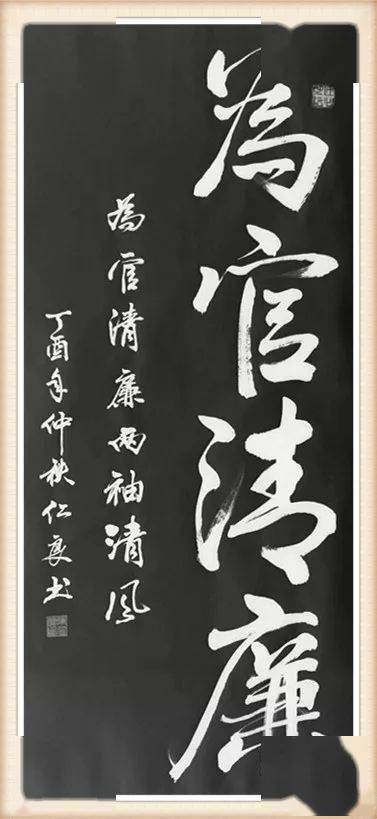 為官清廉
為官清廉兩袖清風
丁酉年仲秋仁良书